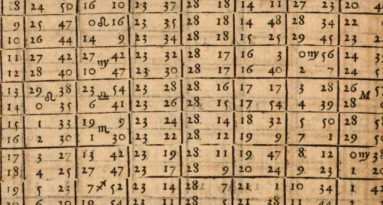 8 24 50 16 10 23 37 28 18 14 11 27 23 20
9 25 47 0♌16 23 35 28 18 14 48 28 34 22
10 26 44 14 9 23 34 28 18 15 25 29 45 23
11 27 42 27 42 23 32 28 17 16 3 0♍56 24
12 28 40 10♍47 23 30 28 17 16 40 2 7 24
13 29♌38 23 54 23 28 28 16 17 17 3 28 26
14 0 35 6 41 23 26 28 15 17 54 4 39 28
15 1 33 19 9 23 24 28 14 18 32 5 50 28
16 2 30 1♏30 23 22 28 12 19 9 7 1 29
17 3 27 13 42 23 19 28 11 19 47 8 12 0♍
18 4 25 27 47 23 17 28 9 20 24 9 23 1
19 5 23 7♐52 23 14 28 7 21 1 10 34 1